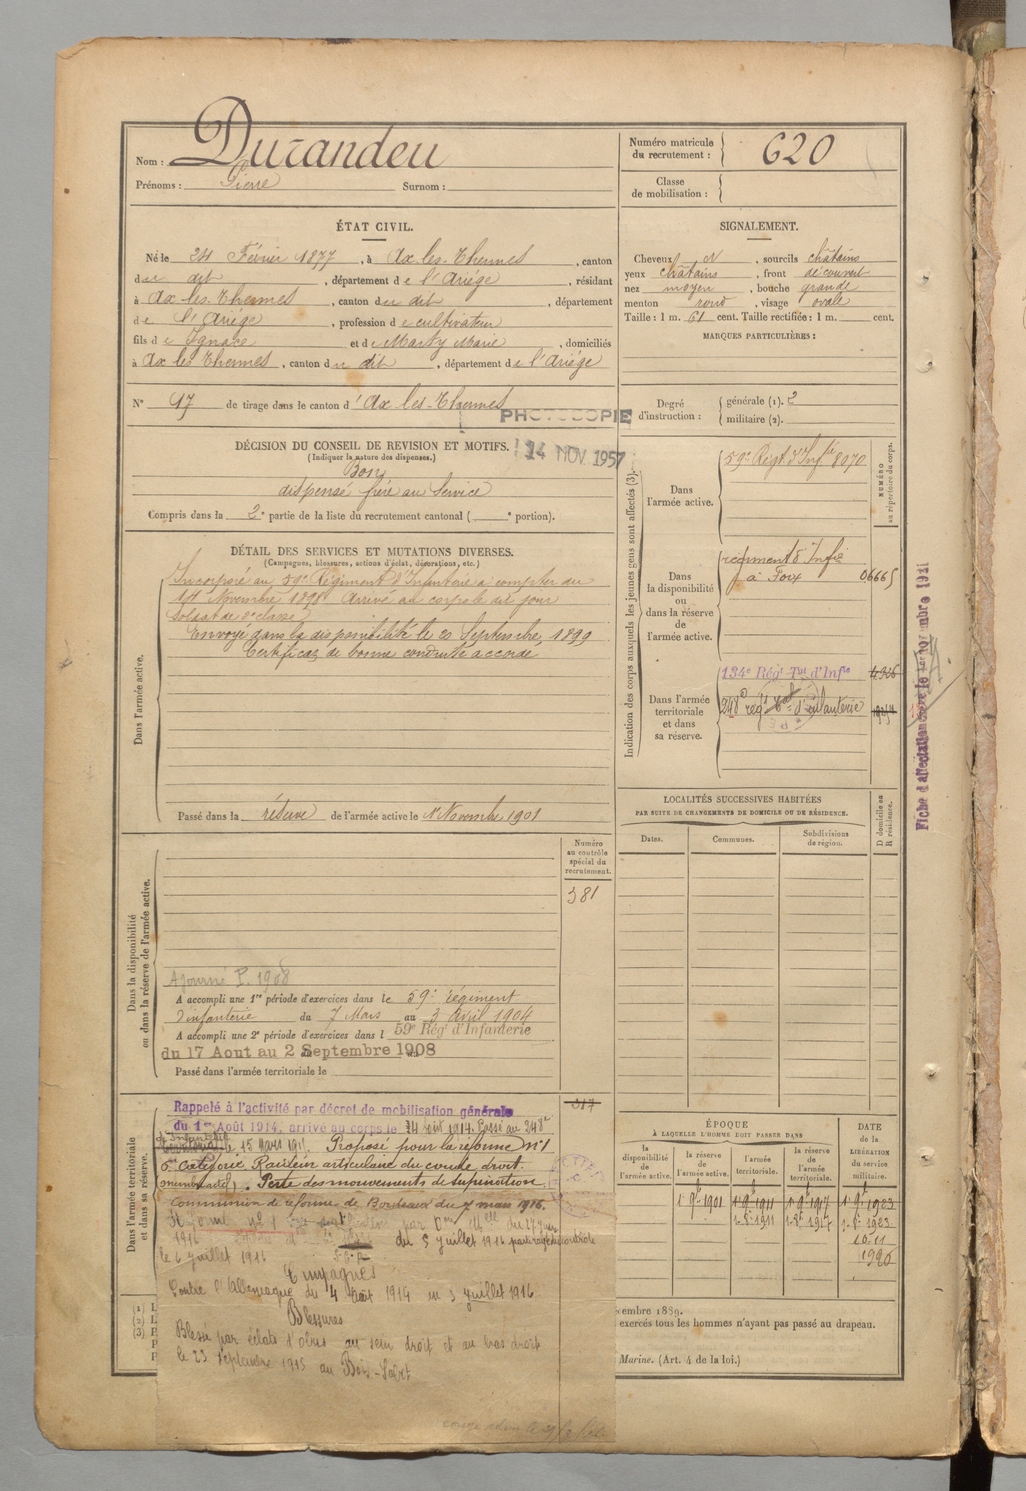 Nom : Durandeu
Prénoms : Pierre Surnom :
Numéro matricule du recrutement : 620
Classe de mobilisation :
ÉTAT CIVIL.
Né le 24 Février 1877, à Ax-les-Thermes, canton
du dit, département de l'Ariège, résidant
à Ax-les-Thermes, canton du dit, département
de l'Ariège, profession de cultivateur
fils de Ignace et de Marty Marie, domiciliés
à Ax les Thermes, canton du dit, département de l'Ariège
N° 17 de tirage dans le canton d'Ax les-Thermes
PHOTOCOPIE
14 NOV. 1957
SIGNALEMENT.
Cheveux N, sourcils châtains
yeux châtains, front découvert
nez moyen, bouche grande
menton rond, visage ovale
Taille : 1 m. 61 cent. Taille rectifiée : 1 m. cent.
MARQUES PARTICULIÈRES :
Degré d'instruction : générale (1). 2
militaire (2).
DÉCISION DU CONSEIL DE REVISION ET MOTIFS.
(Indiquer la nature des dispenses.)
Bon
dispensé frère au Service
Compris dans la 2e partie de la liste du recrutement cantonal ( e portion).
DÉTAIL DES SERVICES ET MUTATIONS DIVERSES.
(Campagnes, blessures, actions d'éclat, décorations, etc.)
Dans l'armée active.
Incorporé au 59e Régiment d'Infanterie à compter du
14 Novembre 1898. Arrivé au corps le dit jour
Soldat de 2e classe
Envoyé dans la disponibilité le 20 Septembre 1899
Certificat de bonne conduite accordé
Passé dans la réserve de l'armée active le 1er Novembre 1901
Indication des corps auxquels les jeunes gens sont affectés (3).
NUMÉRO au répertoire du corps.
Dans l'armée active.
59e Régt d'Infie 8070
Dans la disponibilité ou dans la réserve de l'armée active.
régiment d'Infie
à Foix 06665
Dans l'armée territoriale et dans sa réserve.
134e Régt Tal d'Infie 4326
248e régt d'infanterie
Fiche d'affectation
LOCALITÉS SUCCESSIVES HABITÉES
PAR SUITE DE CHANGEMENTS DE DOMICILE OU DE RÉSIDENCE.
Dates. Communes. Subdivisions de région. D domicile ou R résidence.
Dans la disponibilité ou dans la réserve de l'armée active.
Numéro au contrôle spécial du recrutement.
381
Ajourné P. 1908
A accompli une 1re période d'exercices dans le 59e régiment
d'infanterie du 7 Mars au 3 Avril 1904
A accompli une 2e période d'exercices dans l 59e Régt d'Infanterie
du 17 Aout au 2 Septembre 1908
Passé dans l'armée territoriale le
Dans l'armée territoriale et dans sa réserve.
317
Rappelé à l'activité par décret de mobilisation générale
du 1er Août 1914, arrivé au corps le 14 août 1914. Passé au 248e
d'Infanterie le 15 Mars 1915. Proposé pour la réforme n° 1
6e catégorie Raideur articulaire du coude droit.
Perte des mouvements de supination
Commission de réforme de Bordeaux du 7 mars 1916.
1916 du 5 juillet 1916
le 6 juillet 1916
Campagnes
Contre l'Allemagne du 4 Août 1914 au 5 juillet 1916
Blessures
Blessé par éclats d'obus au sein droit et au bras droit
le 23 Septembre 1915 au Bois-Sabot
ÉPOQUE
À LAQUELLE L'HOMME DOIT PASSER DANS
la disponibilité de l'armée active. la réserve de l'armée active. l'armée territoriale. la réserve de l'armée territoriale. DATE de la LIBÉRATION du service militaire.
1er 9bre 1901 1er 9bre 1911 1er 9bre 1917 1er 9bre 1923
10-11
1926
(1) L
(2) L
(3) P
P
P
écembre 1889.
exercés tous les hommes n'ayant pas passé au drapeau.
Marine. (Art. 4 de la loi.)